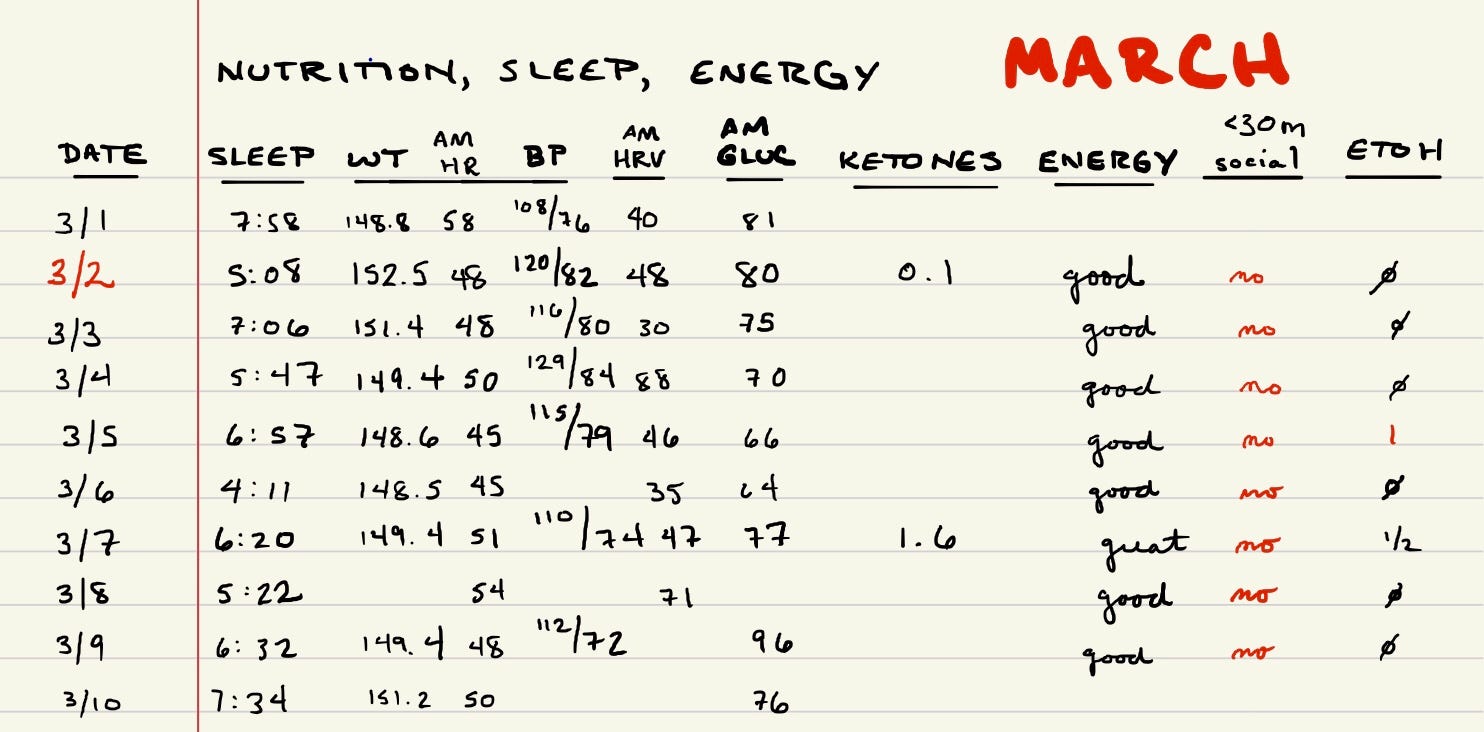 NUTRITION, SLEEP, ENERGY MARCH
DATE SLEEP WT AM HR BP AM HRV AM GLUC KETONES ENERGY <30m social ETOH
3/1 7:58 148.8 58 108/76 40 81
3/2 5:08 152.5 48 120/82 48 80 0.1 good no ∅
3/3 7:06 151.4 48 116/80 30 75 good no ∅
3/4 5:47 149.4 50 129/84 88 70 good no ∅
3/5 6:57 148.6 45 115/79 46 66 good no 1
3/6 4:11 148.5 45 35 64 good no ∅
3/7 6:20 149.4 51 110/74 47 77 1.6 great no 1/2
3/8 5:22 54 71 good no ∅
3/9 6:32 149.4 48 112/72 96 good no ∅
3/10 7:34 151.2 50 76